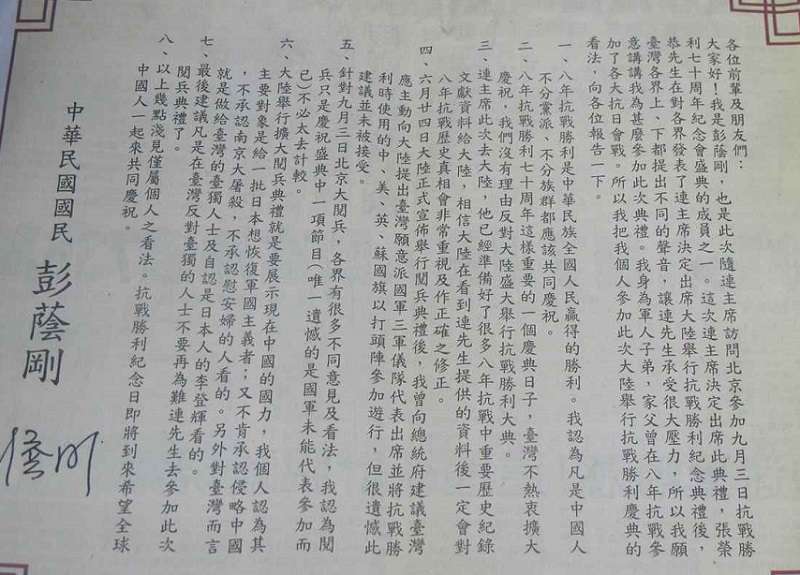 各位前輩及朋友們：
大家好！我是彭蔭剛，也是此次隨連主席訪問北京參加九月三日抗戰勝
利七十周年紀念會盛典的成員之一。這次連主席決定出席此典禮，張榮
恭先生在對各界發表了連主席決定出席大陸舉行抗戰勝利紀念典禮後，
臺灣各界上、下都提出不同的聲音，讓連先生承受很大壓力，所以我願
意講講我為甚麼參加此次典禮。我身為軍人子弟，家父曾在八年抗戰參
加了各大抗日會戰。所以我把我個人參加此次大陸舉行抗戰勝利慶典的
看法，向各位報告一下。
一、八年抗戰勝利是中華民族全國人民贏得的勝利。我認為凡是中國人
不分黨派、不分族群都應該共同慶祝。
二、八年抗戰勝利七十周年這樣重要的一個慶典日子，臺灣不熱衷擴大
慶祝，我們沒有理由反對大陸盛大舉行抗戰勝利大典。
三、連主席此次去大陸，他已經準備好了很多八年抗戰中重要歷史紀錄
文獻資料給大陸，相信大陸在看到連先生提供的資料後一定會對
八年抗戰歷史真相會非常重視及作正確之修正。
四、六月廿四日大陸正式宣佈舉行閱兵典禮後，我曾向總統府建議臺灣
應主動向大陸提出臺灣願意派國軍三軍儀隊代表出席並將抗戰勝
利時使用的中、美、英、蘇國旗以打頭陣參加遊行，但很遺憾此
建議並未被接受。
五、針對九月三日北京大閱兵，各界有很多不同意見及看法，我認為閱
兵只是慶祝盛典中一項節目(唯一遺憾的是國軍未能代表參加而
已)不必太去計較。
六、大陸舉行擴大閱兵典禮就是要展示現在中國的國力，我個人認為其
主要對象是給一批日本想恢復軍國主義者；又不肯承認侵略中國
，不承認南京大屠殺，不承認慰安婦的人看的。另外對臺灣而言
就是做給臺灣的臺獨人士及自認是日本人的李登輝看的。
七、最後建議凡是在臺灣反對臺獨的人士不要再為難連先生去參加此次
閱兵典禮了。
八、以上幾點淺見僅屬個人之看法。抗戰勝利紀念日即將到來希望全球
中國人一起來共同慶祝。
中華民國國民 彭蔭剛